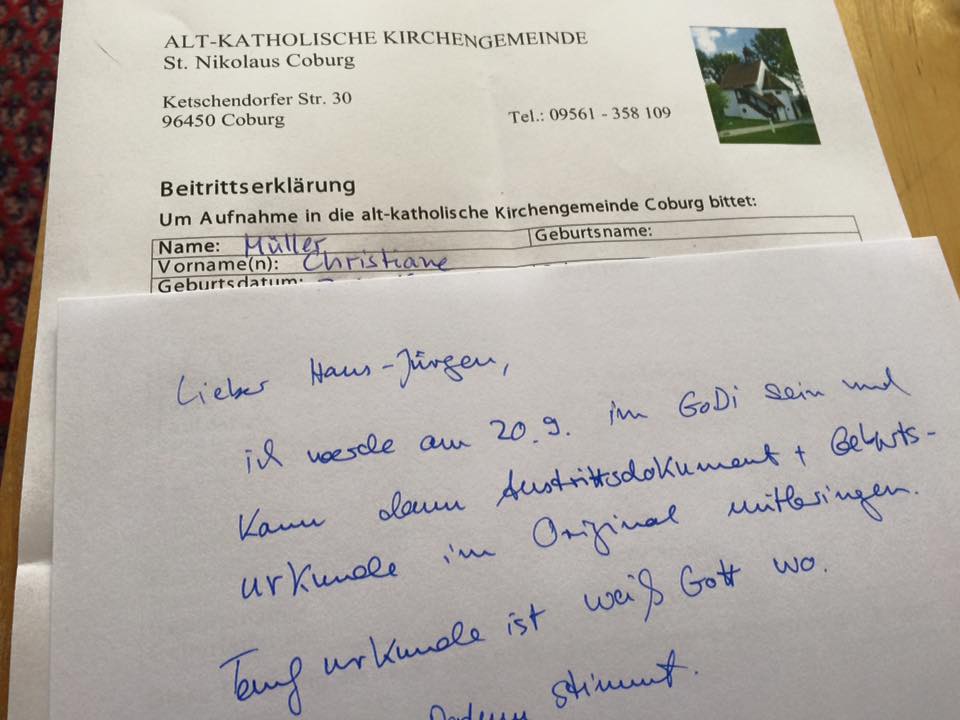 ALT-KATHOLISCHE KIRCHENGEMEINDE
St. Nikolaus Coburg
Ketschendorfer Str. 30
96450 Coburg
Tel.: 09561 - 358 109
Beitrittserklärung
Um Aufnahme in die alt-katholische Kirchengemeinde Coburg bittet:
Name: Müller Geburtsname:
Vorname(n): Christiane
Geburtsdatum:
Lieber Hans-Jürgen,
ich werde am 20.9. im GoDi sein und
kann dann Austrittsdokument + Geburts-
urkunde im Original mitbringen.
Taufurkunde ist weiß Gott wo.
stimmt.